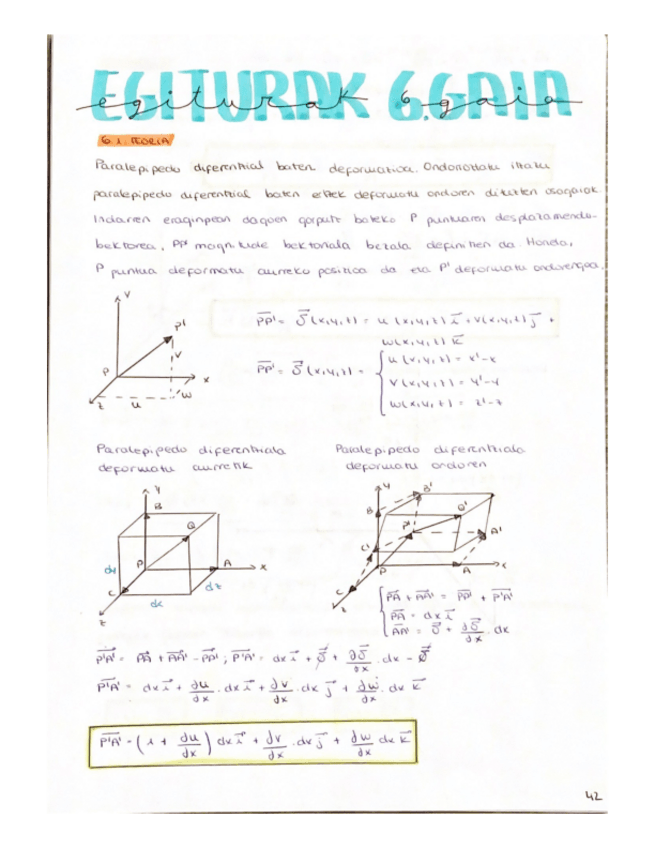 EGITURAK 6.GAIA
egiturak 6.gaia
6.1. TEORIA
Paralepipedo diferentzial baten deformazioa. Ondorioztatu itzazu
paralepipedo diferentzial baten ertzek deformatu ondoren dituzten osagaiak.
Indarren eraginpean dagoen gorputz bateko P puntuaren desplazamendu-
bektorea, PP' magnitude bektoriala bezala definitzen da. Honela,
P puntua deformatu aurreko posizioa da eta P' deformatu ondorengoa.
V
P'
V
P
x
z
u
w
PP' = δ (x,y,z) = u (x,y,z) i + v(x,y,z) j +
w(x,y,z) k
PP' = δ (x,y,z) =
u (x,y,z) = x'-x
v (x,y,z) = y'-y
w(x,y,z) = z'-z
Paralepipedo diferentziala
deformatu aurretik
Paralepipedo diferentziala
deformatu ondoren
y
B
Q
P
A
x
dy
C
dx
dz
z
y
B'
B
Q'
P'
A'
C'
P
A
x
C
z
PA + AA' = PP' + P'A'
PA = dx i
AA' = δ + ∂δ/∂x . dx
P'A' = PA + AA' - PP' ; P'A' = dx i + δ + ∂δ/∂x . dx - δ
P'A' = dx i + ∂u/∂x . dx i + ∂v/∂x . dx j + ∂w/∂x . dx k
P'A' = (1 + ∂u/∂x) dx i + ∂v/∂x . dx j + ∂w/∂x dx k
42